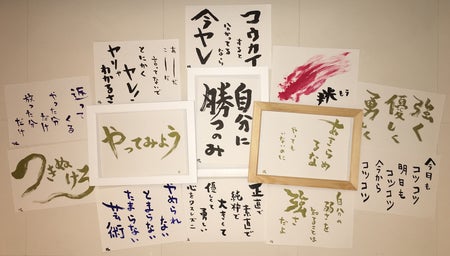 コウカイ
すると
わかってるなら
今ヤレ
言ってないで
とにかく
ヤレ!
ヤリャ
わかるさ
挑
自分に
勝つのみ
強く
優しく
やった分だけ
やってみよう
あきらめ
るな
やっても
いないのに
今日も
コツコツ
明日も
コツコツ
今から
コツコツ
つきぬけろ
やめられ
ない
とまらない
たまらない
正直で
素直で
純粋で
大きくて
優しくて
勇しい
自分の
弱さを
知ることは
強さ
だよ